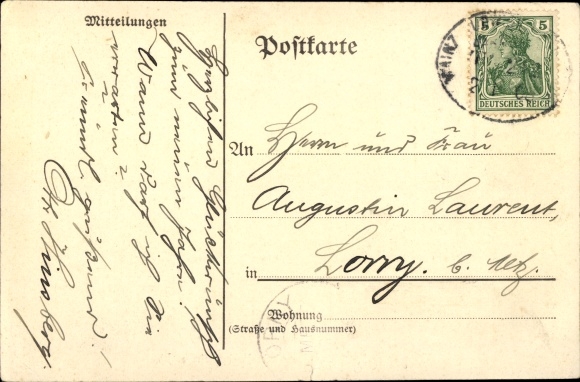 Mitteilungen
Herzlichen Glückwunsch
zum neuen Jahre!
Wann darf ich Sie
erwarten?
Otto Hinsberg
Postkarte
MAINZ
5
DEUTSCHES REICH
An Herrn und Frau
Augustin Laurent,
in Lorry. b. Metz.
Wohnung
(Straße und Hausnummer)